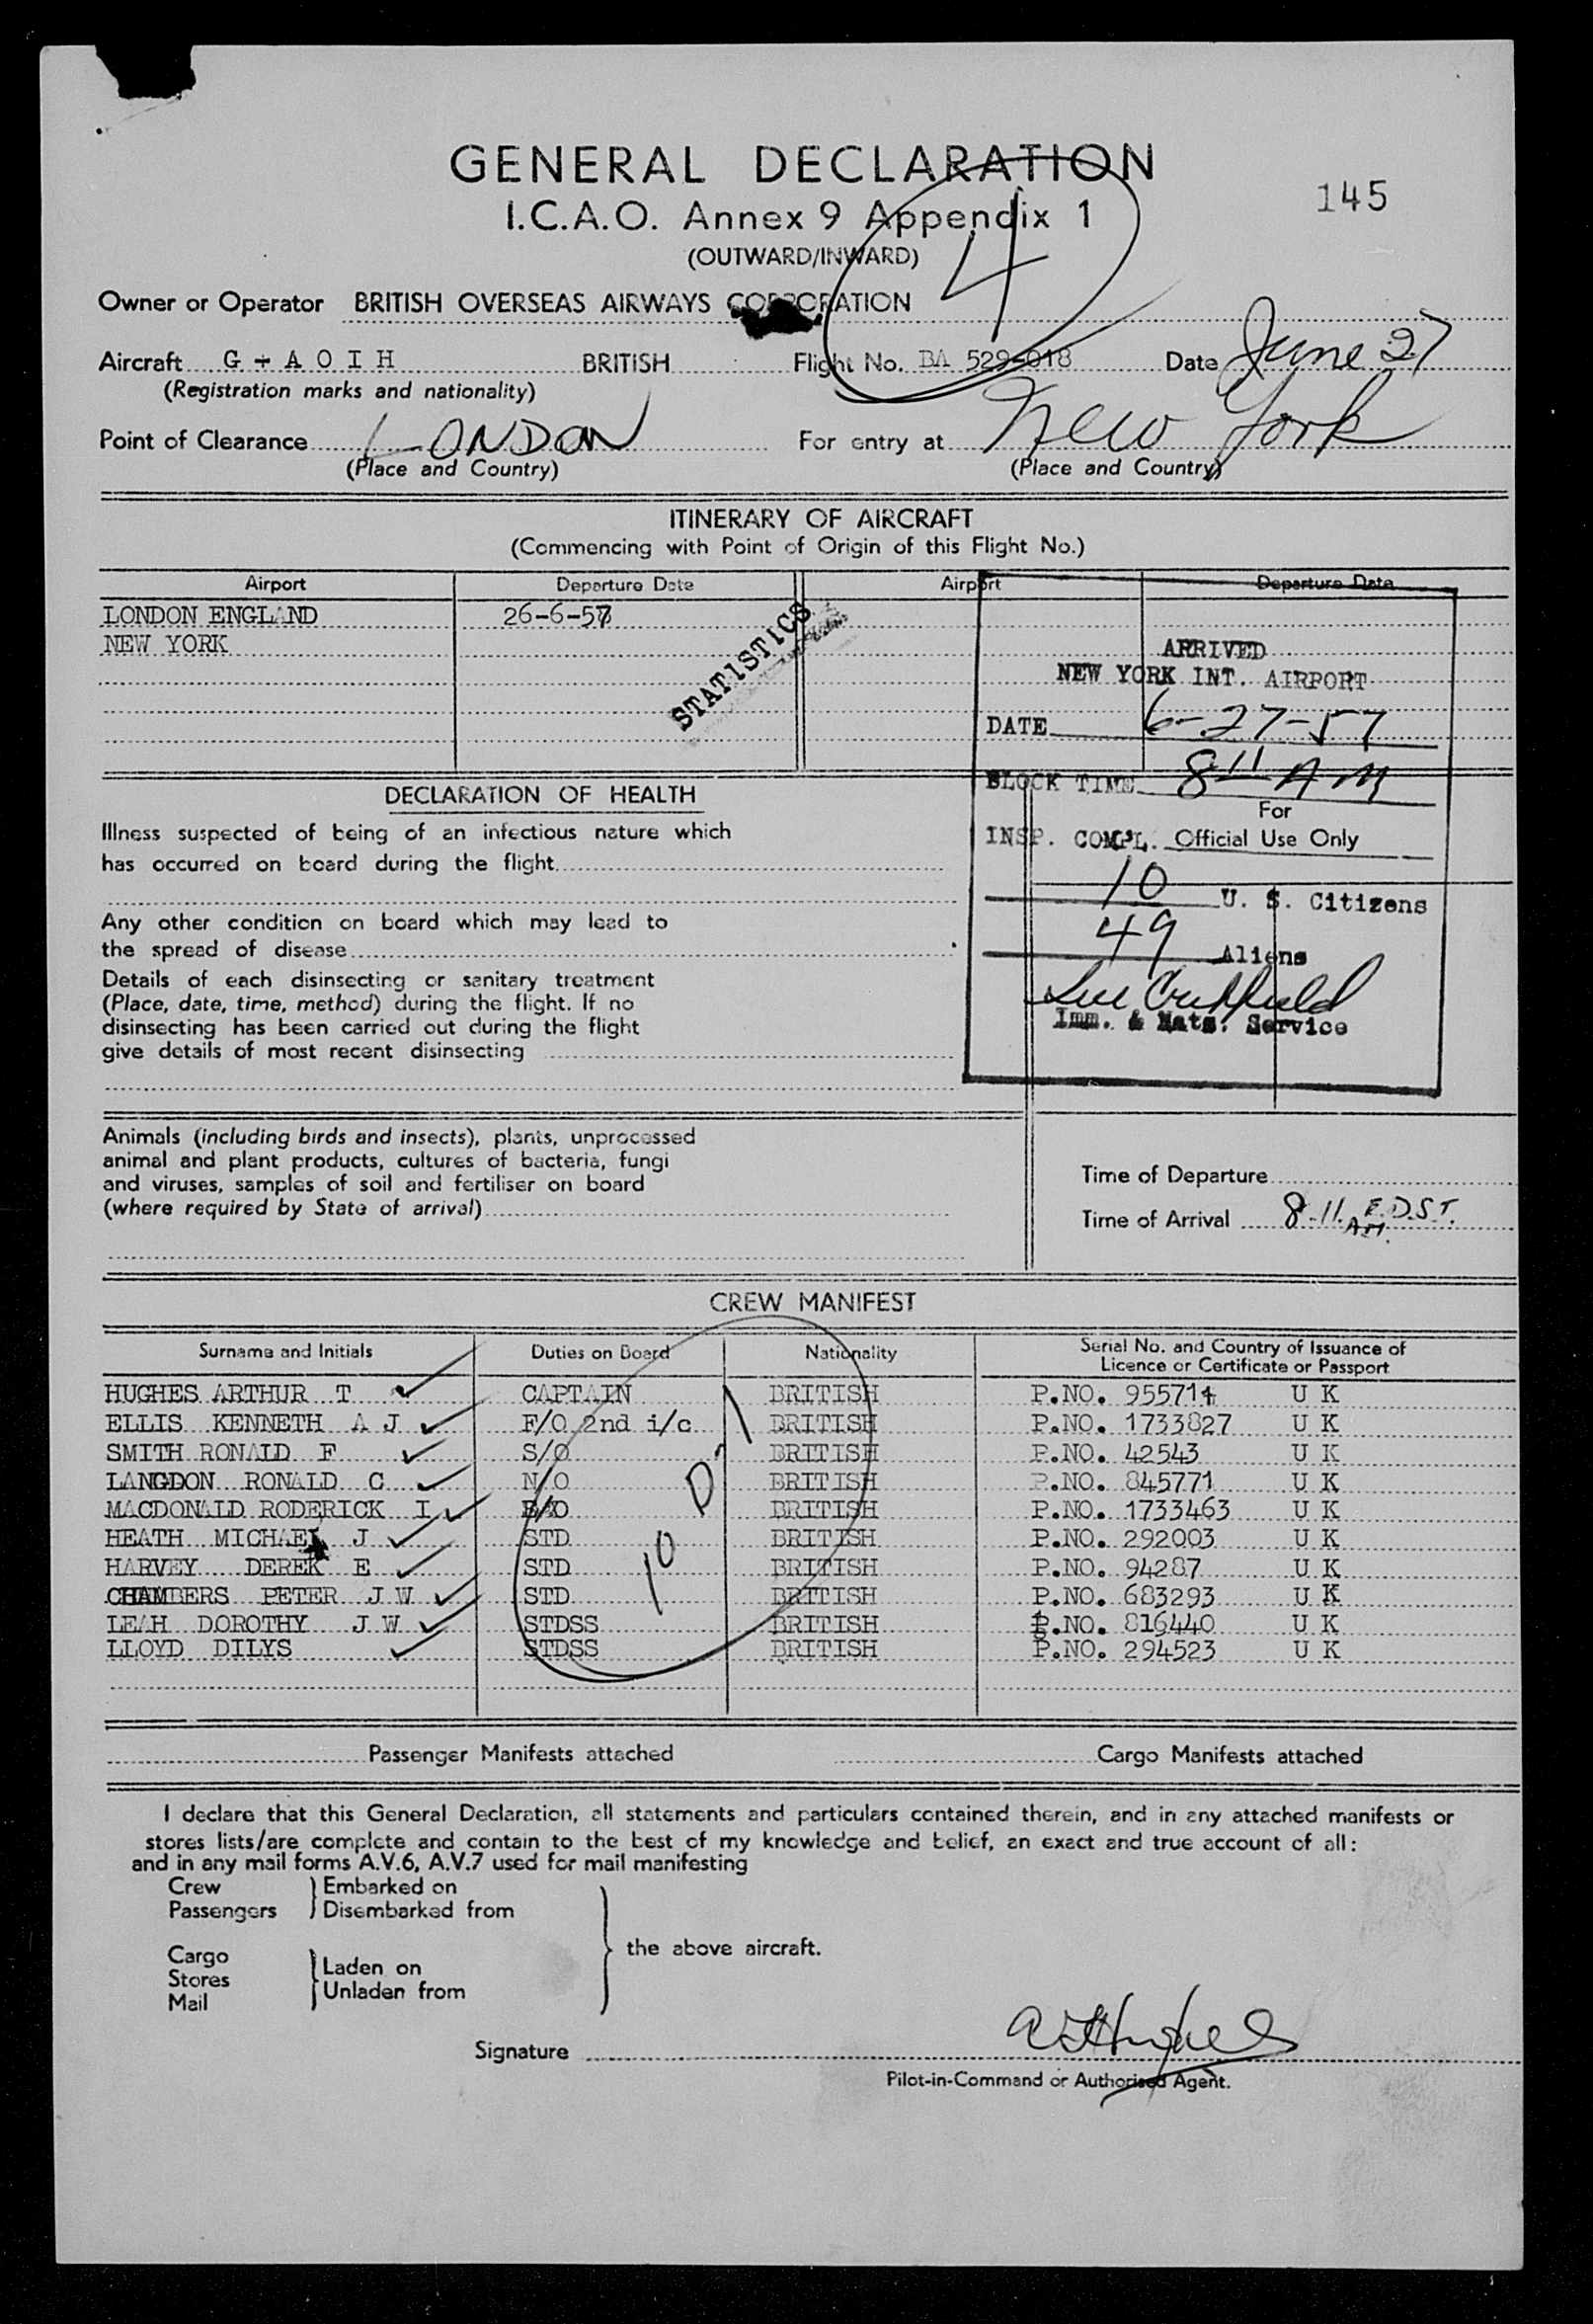 GENERAL DECLARATION
145
I.C.A.O. Annex 9 Appendix 1
4
(OUTWARD/INWARD)
Owner or Operator BRITISH OVERSEAS AIRWAYS CORPORATION
Aircraft G - A O I H BRITISH Flight No. BA 529-018 Date June 27
(Registration marks and nationality)
Point of Clearance LONDON For entry at New York
(Place and Country) (Place and Country)
ITINERARY OF AIRCRAFT
(Commencing with Point of Origin of this Flight No.)
Airport Departure Date Airport Departure Date
LONDON ENGLAND 26-6-57
NEW YORK
STATISTICS
ARRIVED
NEW YORK INT. AIRPORT
DATE 6-27-57
BLOCK TIME 8 11 AM
For
INSP. COMPL. Official Use Only
10 U. S. Citizens
49 Aliens
Imm. & Nats. Service
DECLARATION OF HEALTH
Illness suspected of being of an infectious nature which
has occurred on board during the flight
Any other condition on board which may lead to
the spread of disease
Details of each disinsecting or sanitary treatment
(Place, date, time, method) during the flight. If no
disinsecting has been carried out during the flight
give details of most recent disinsecting
Animals (including birds and insects), plants, unprocessed
animal and plant products, cultures of bacteria, fungi
and viruses, samples of soil and fertiliser on board
(where required by State of arrival)
Time of Departure
Time of Arrival 8.11. AM. E.D.S.T.
CREW MANIFEST
Surname and Initials Duties on Board Nationality Serial No. and Country of Issuance of
Licence or Certificate or Passport
HUGHES ARTHUR T CAPTAIN BRITISH P.NO. 955714 U K
ELLIS KENNETH A J F/O 2nd i/c BRITISH P.NO. 1733827 U K
SMITH RONALD F S/O BRITISH P.NO. 42543 U K
LANGDON RONALD C N/O BRITISH P.NO. 845771 U K
MACDONALD RODERICK I E/O BRITISH P.NO. 1733463 U K
HEATH MICHAEL J STD BRITISH P.NO. 292003 U K
HARVEY DEREK E STD BRITISH P.NO. 94287 U K
CHAMBERS PETER J W STD BRITISH P.NO. 683293 U K
LEAH DOROTHY J W STDSS BRITISH P.NO. 816440 U K
LLOYD DILYS STDSS BRITISH P.NO. 294523 U K
10
Passenger Manifests attached Cargo Manifests attached
I declare that this General Declaration, all statements and particulars contained therein, and in any attached manifests or
stores lists/are complete and contain to the best of my knowledge and belief, an exact and true account of all:
and in any mail forms A.V.6, A.V.7 used for mail manifesting
Crew Embarked on
Passengers Disembarked from
the above aircraft.
Cargo
Stores Laden on
Mail Unladen from
Signature A T Hughes
Pilot-in-Command or Authorised Agent.